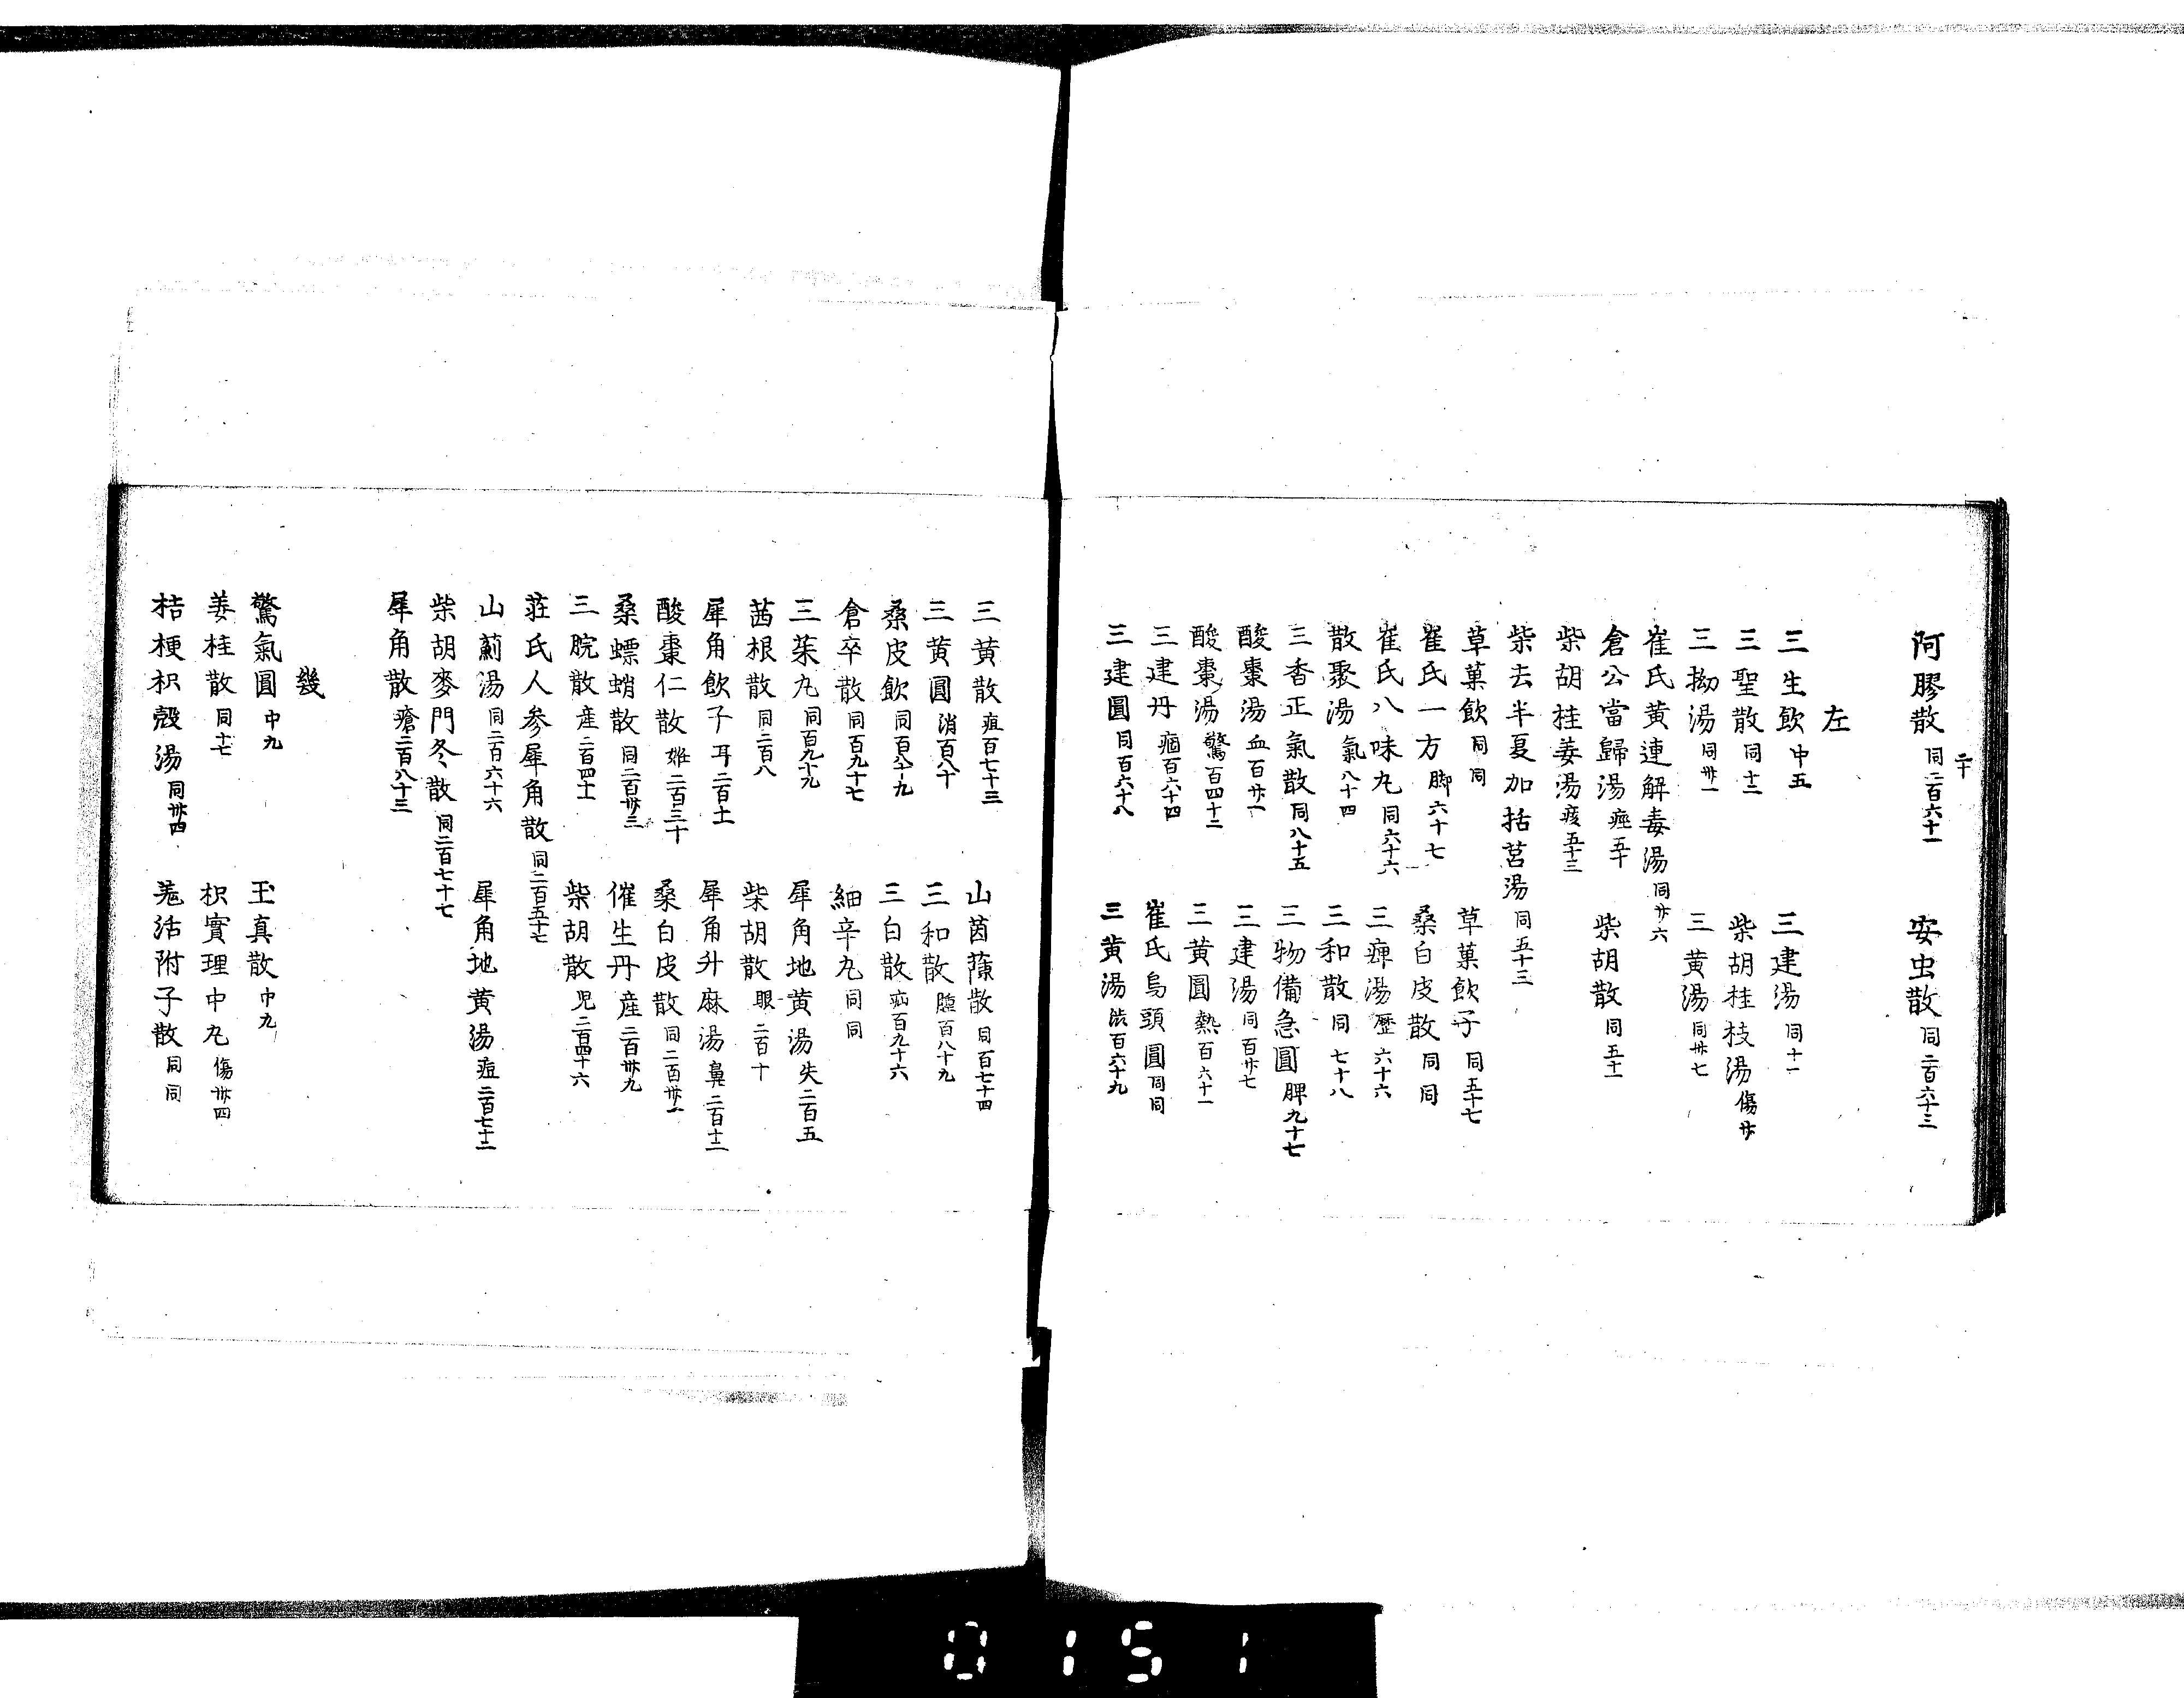 二十
阿膠散 同二百六十一 安虫散 同二百六十三
左
三生飲 中五 三建湯 同十一
三聖散 同十二 柴胡桂枝湯 傷廿
三拗湯 同卅一 三黄湯 同卅七
崔氏黄連解毒湯 同廾六
倉公當歸湯 痙五十 柴胡散 同五十一
柴胡桂姜湯 痎五十三
柴去半夏加括莒湯 同五十三
草菓飲 同同 草菓飲子 同五十七
崔氏一方 脚六十七 桑白皮散 同同
崔氏八味九 同六十六 三痺湯 歴六十六
散聚湯 氣八十四 三和散 同七十八
三香正氣散 同八十五 三物備急圓 脾九十七
酸棗湯 血百廾一 三建湯 同百廾七
酸棗湯 驚百四十二 三黄圓 熱百六十一
三建丹 痼百六十四 崔氏烏頭圓 同同
三建圓 同百六十八 三黄湯 百六十九
三黄散 疸百七十三 山茵蔯散 同百七十四
三黄圓 消百八十 三和散 百八十九
桑皮飲 同百八十九 三白散 疝百九十六
倉卒散 同百九十七 細辛九 同同
三茱九 同百九十九 犀角地黄湯 失二百五
茜根散 同二百八 柴胡散 眼二百十
犀角飲子 耳二百十一 犀角升麻湯 鼻二百十二
酸棗仁散 二百三十 桑白皮散 同二百卅一
桑螵蛸散 同二百卅三 催生丹 産二百卅九
三脘散 産二百四十一 柴胡散 児二百四十六
荘氏人参犀角散 同二百五十七
山薊湯 同二百六十六 犀角地黄湯 痘二百七十二
柴胡麥門冬散 同二百七十七
犀角散 瘡二百八十三
幾
驚氣圓 中九 玉真散 中九
姜桂散 同十七 枳實理中九 傷卅四
桔梗枳殻湯 同卅四 羗活附子散 同同
0151